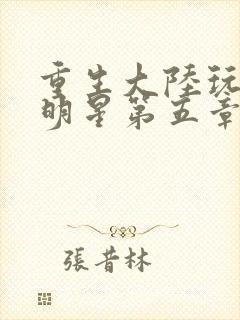 重生大陸玩
明星第五章
張昔林